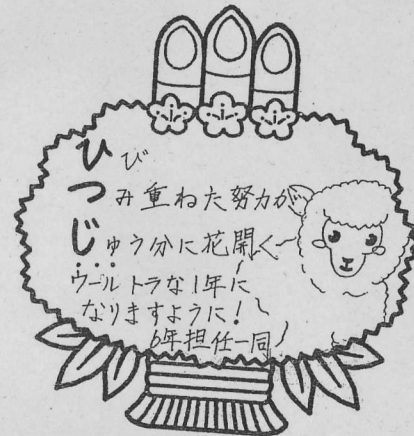 ひび
つみ重ねた努力が
じゅう分に花開く
ウールトラな1年に
なりますように!
6年担任一同